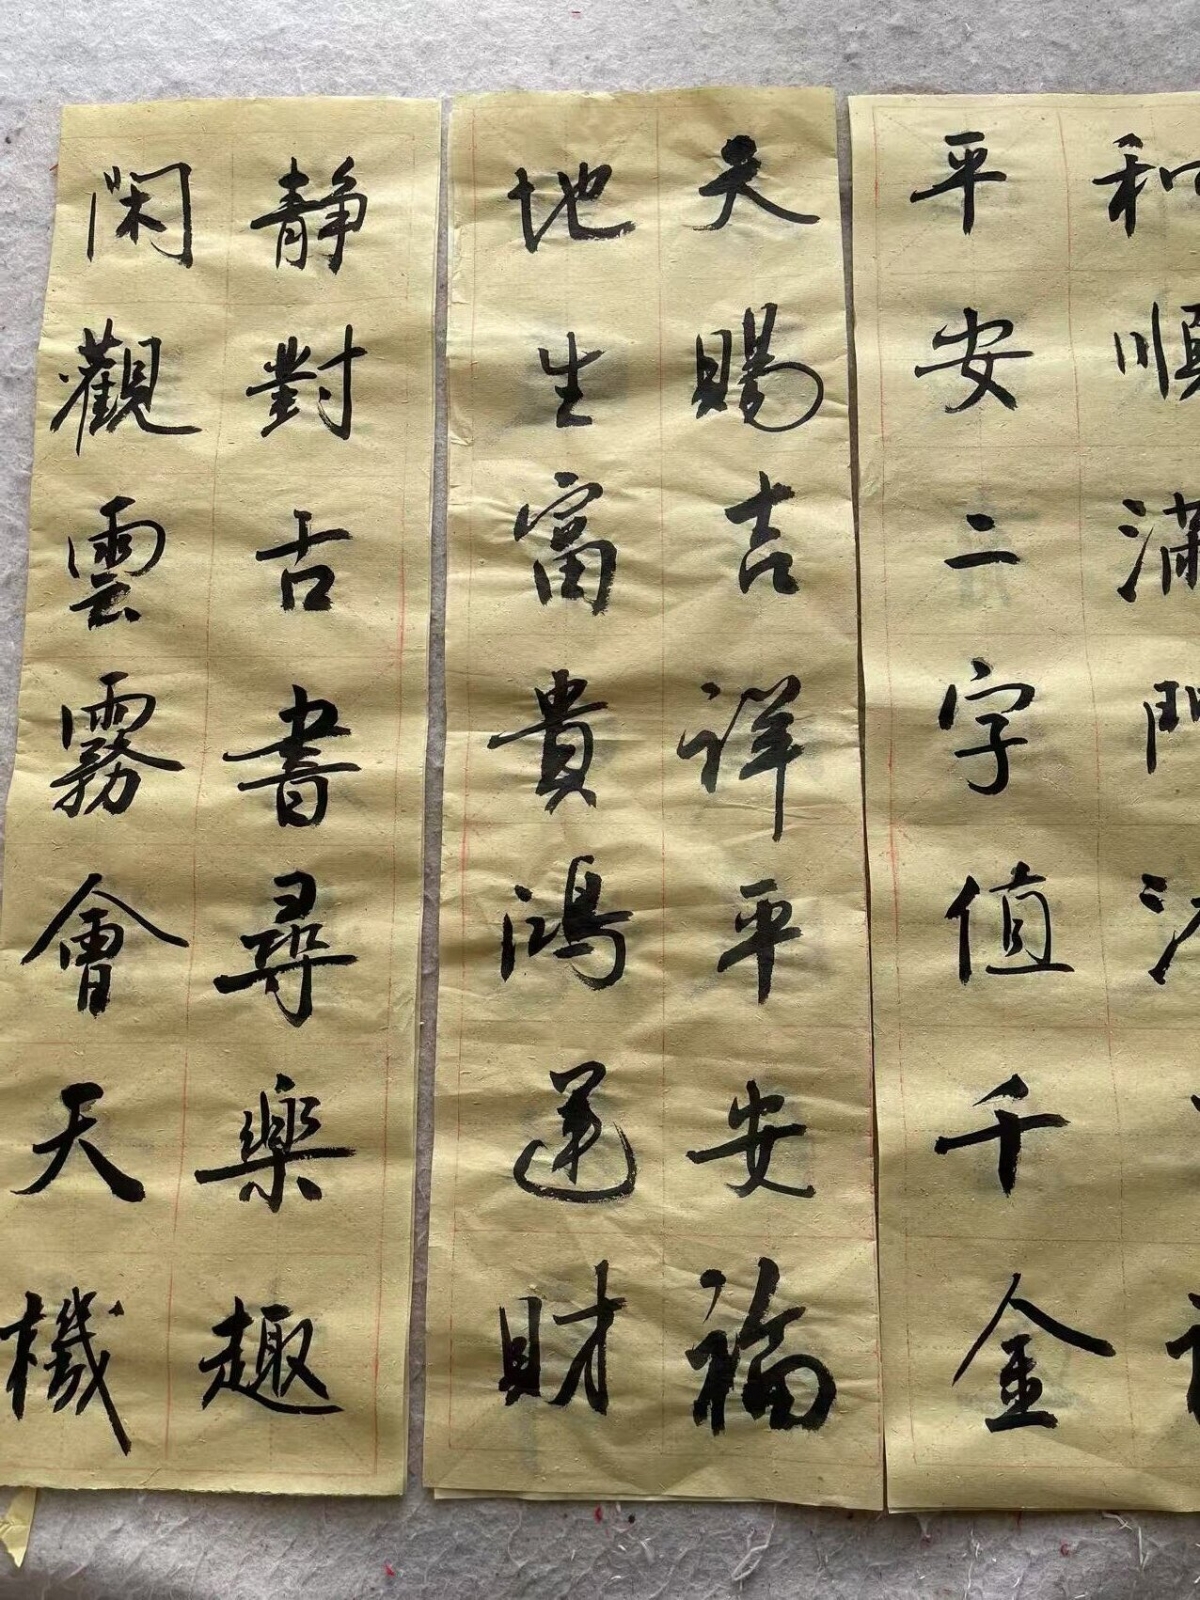 和順滿門
平安二字值千金
天賜吉祥平安福
地生富貴鴻運財
静對古書尋樂趣
閑觀雲霧會天機